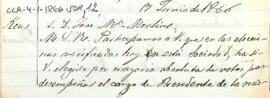 CCR-4-1-1866 SDR, 12
17 Junio de 1866
Reus. S. D. José Mª Morlius.
Participamos á V. que en las eleccio-
nes verificadas hoy en esta Sociedad, ha si-
elegido por mayoria absoluta de votos para
desempeñar el cargo de Presidente de la mis-